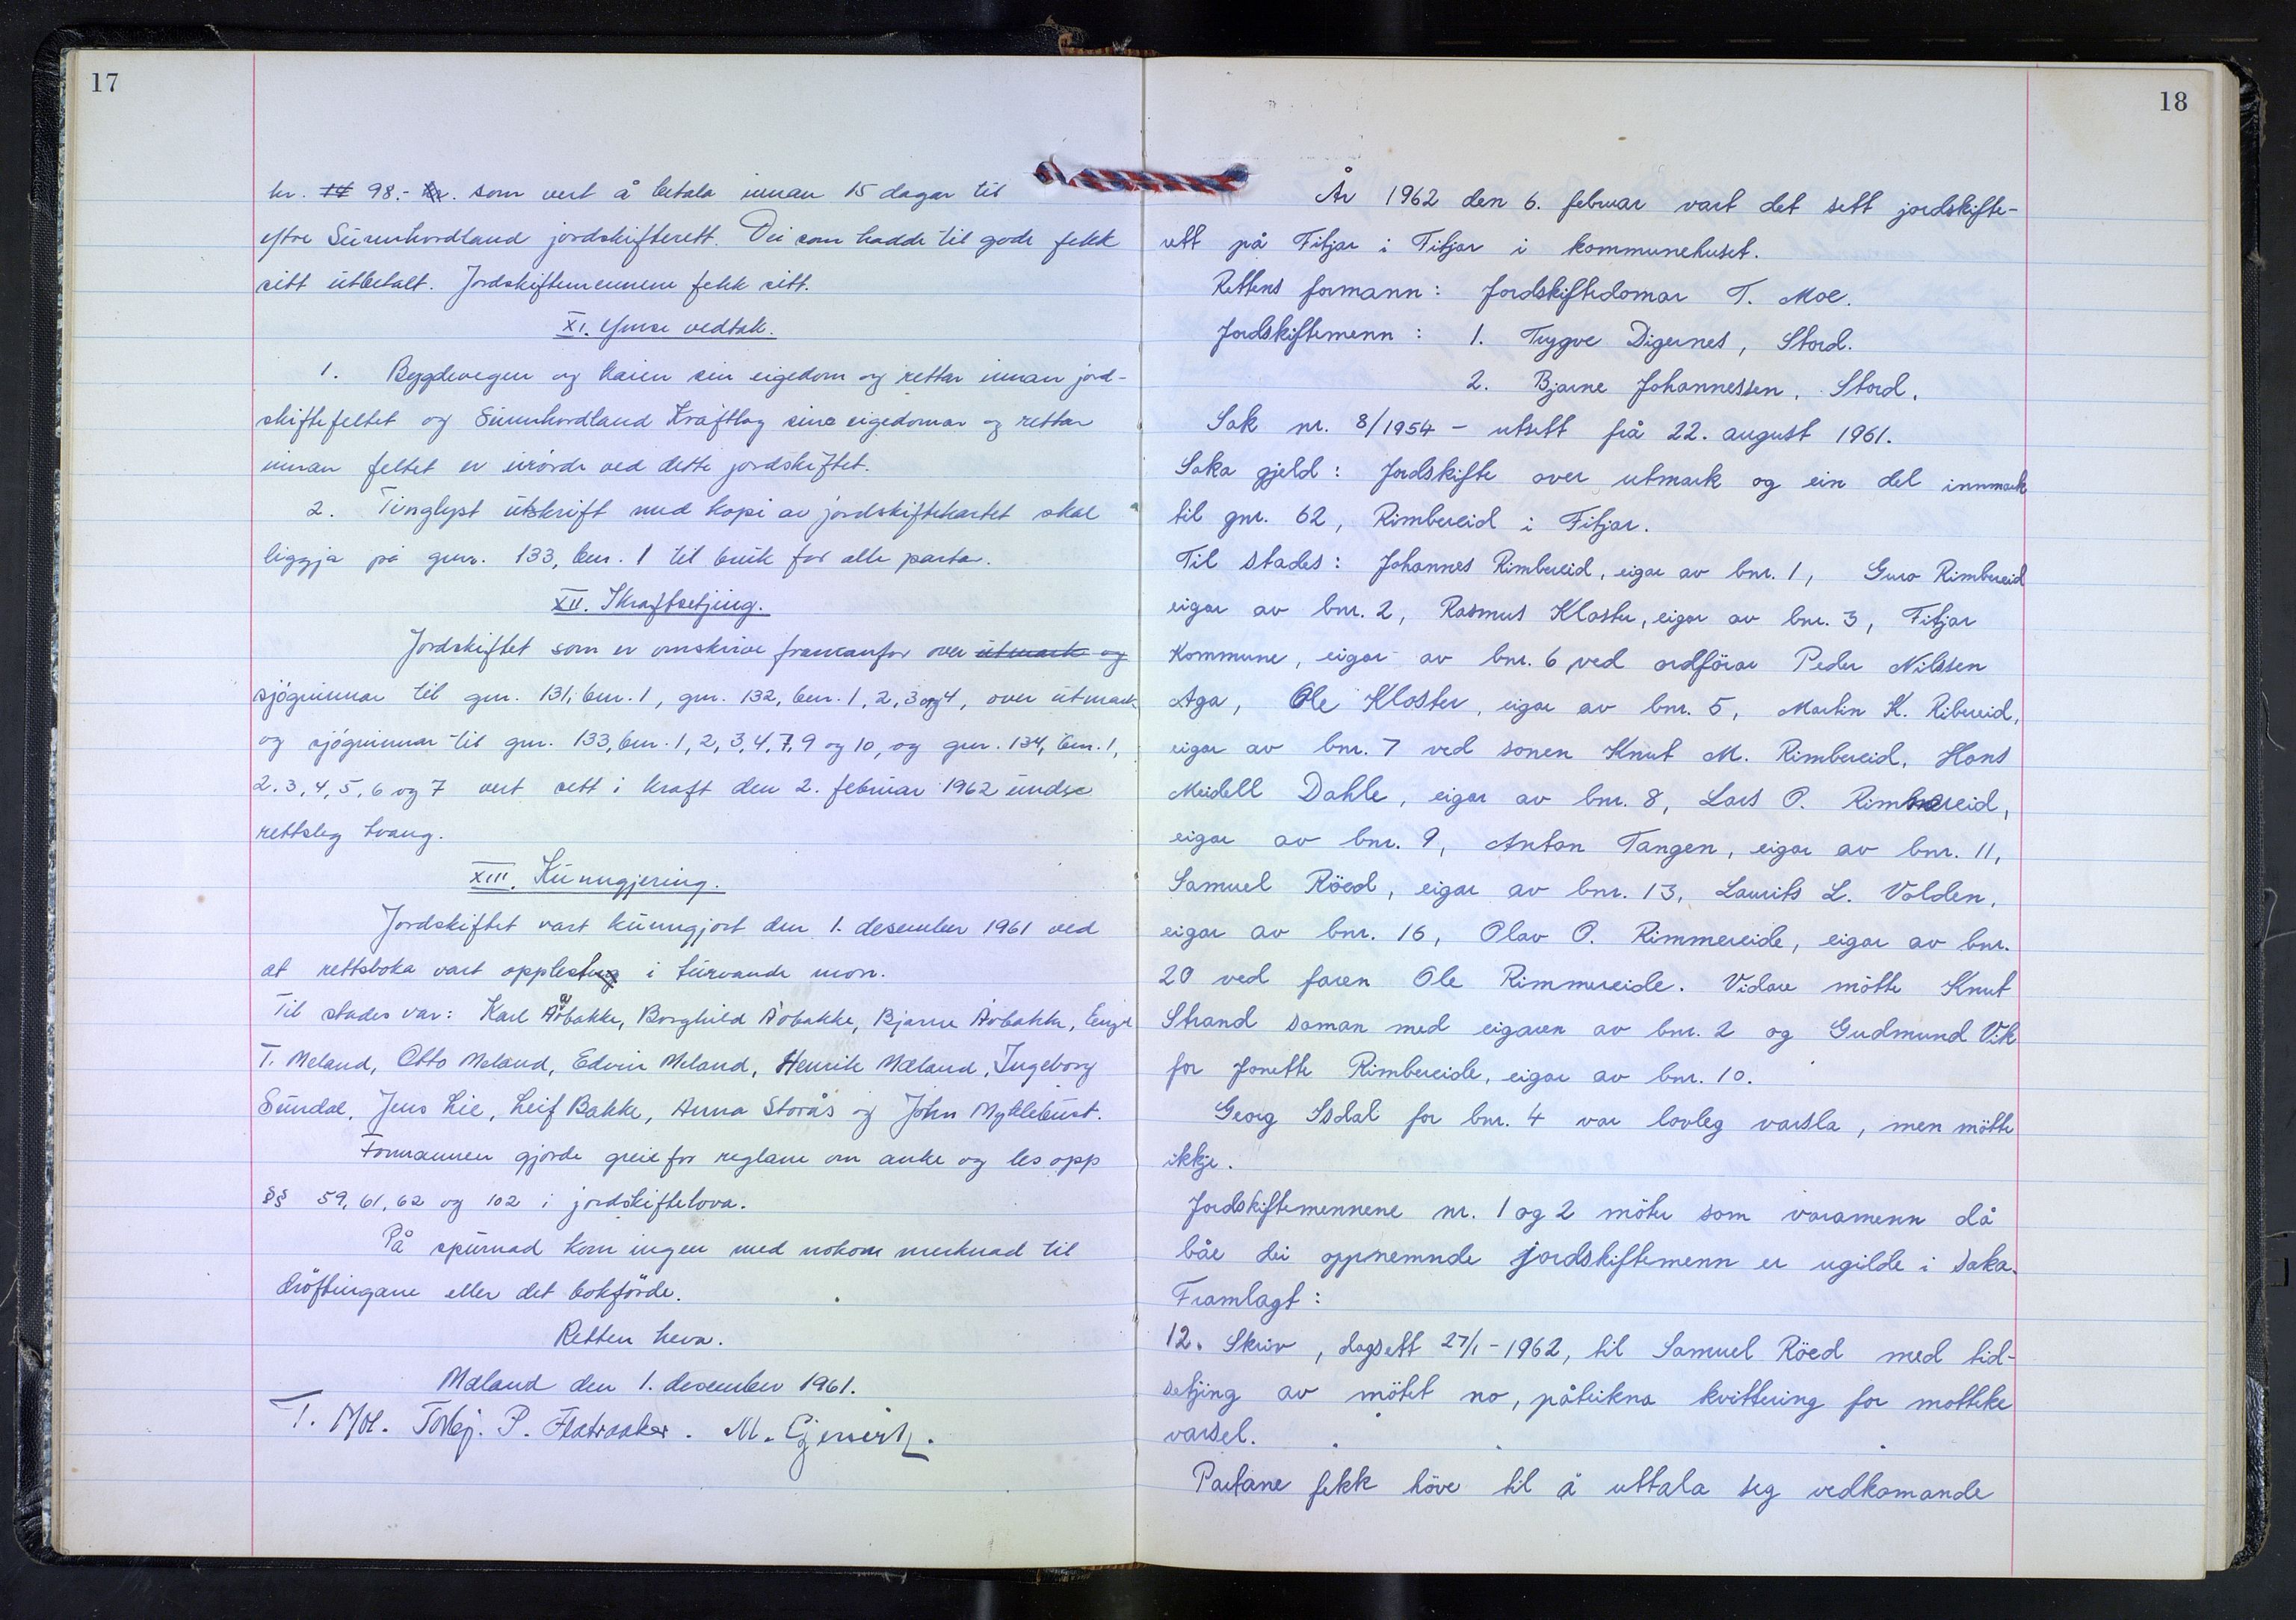 17
kr. 98.- som vert å betala innan 15 dagar til
ytre Sunnhordland jordskifterett. Dei som hadde til gode fekk
sitt utbetalt. Jordskiftemennene fekk sitt.
XI. Ymse vedtak.
1. Bygdevegen og kaien sin eigedom og rettar innan jord-
skiftefeltet og Sunnhordland Kraftlag sine eigedomar og rettar
innan feltet er urørde ved dette jordskiftet.
2. Tinglyst utskrift med kopi av jordskiftekartet skal
liggja på gnr. 133, bnr. 1 til bruk for alle partar.
XII. Ikraftsetjing.
Jordskiftet som er omskrive framanfor over utmark og
sjøgrunnar til gnr. 131, bnr. 1, gnr. 132, bnr. 1, 2, 3 og 4, over utmark
og sjøgrunnar til gnr. 133, bnr. 1, 2, 3, 4, 7, 9 og 10, og gnr. 134, bnr. 1,
2, 3, 4, 5, 6 og 7 vert sett i kraft den 2. februar 1962 under
rettsleg tvang.
XIII. Kunngjering.
Jordskiftet vart kunngjort den 1. desember 1961 ved
at rettsboka vart opplest i turvande mon.
Til stades var: Karl Åbakke, Borghild Åbakke, Bjarne Åbakke,
T. Meland, Otto Meland, Edvin Meland, Henrik Mæland, Ingeborg
Sundal, Jens Lie, Leif Bakke, Anna Storås og John Myklebust.
Formannen gjorde greie for reglane om anke og les opp
§§ 59, 61, 62 og 102 i jordskiftelova.
På spurnad kom ingen med nokon merknad til
drøftingane eller det bokførde.
Retten heva.
Mæland den 1. desember 1961.
T. Moe. Torbj. P. Flatraaker. M.
18
År 1962 den 6. februar vart det sett jordskifte-
rett på Fitjar i Fitjar i kommunehuset.
Rettens formann: Jordskiftedomar T. Moe.
Jordskiftemenn: 1. Trygve Digernes, Stord.
2. Bjarne Johannessen, Stord.
Sak nr. 8/1954 - utsett frå 22. august 1961.
Saka gjeld: Jordskifte over utmark og ein del innmark
til gnr. 62, Rimbereid i Fitjar.
Til stades: Johannes Rimbereid, eigar av bnr. 1, Guro Rimbereid
eigar av bnr. 2, Rasmus Kloster, eigar av bnr. 3, Fitjar
Kommune, eigar av bnr. 6 ved ordförar Peder Nilssen
Aga, Ole Kloster, eigar av bnr. 5, Martin K. Ribereid,
eigar av bnr. 7 ved sonen Knut M. Rimbereid, Hans
Meidell Dahle, eigar av bnr. 8, Lars O. Rimbereid,
eigar av bnr. 9, Anton Tangen, eigar av bnr. 11,
Samuel Röed, eigar av bnr. 13, Laurits L. Volden,
eigar av bnr. 16, Olav O. Rimmereide, eigar av bnr.
20 ved faren Ole Rimmereide. Vidare mötte Knut
Strand saman med eigaren av bnr. 2 og Gudmund Vik
for Jonette Rimbereide, eigar av bnr. 10.
Georg Isdal for bnr. 4 var lovleg varsla, men mötte
ikkje.
Jordskiftemennene nr. 1 og 2 möter som varamenn då
båe dei oppnemnde jordskiftemenn er ugilde i saka.
Framlagt:
12. Skriv, dagsett 27/1-1962, til Samuel Röed med tid-
setjing av mötet no, påteikna kvittering for motteke
varsel.
Partane fekk höve til å uttala seg vedkomande